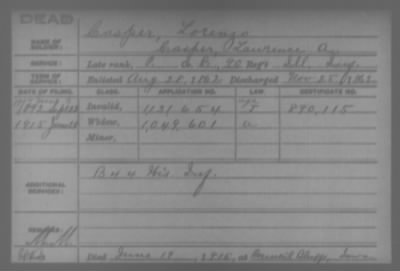 DEAD
NAME OF SOLDIER: Casper, Lorenzo
Casper, Lawrence A.
SERVICE: Late rank, C. Co. B, 90 Reg't Ill. Inf.
TERM OF SERVICE: Enlisted Aug. 28, 1862 Discharged Nov. 25, 1862
DATE OF FILING. CLASS. APPLICATION NO. LAW. CERTIFICATE NO.
1892 Invalid, 1131654 890,115
1915 June 28 Widow, 1,049,601
Minor,
ADDITIONAL SERVICES: B 44 Wis. Inf.
REMARKS:
Died June 19, 1915, at Council Bluffs, Iowa